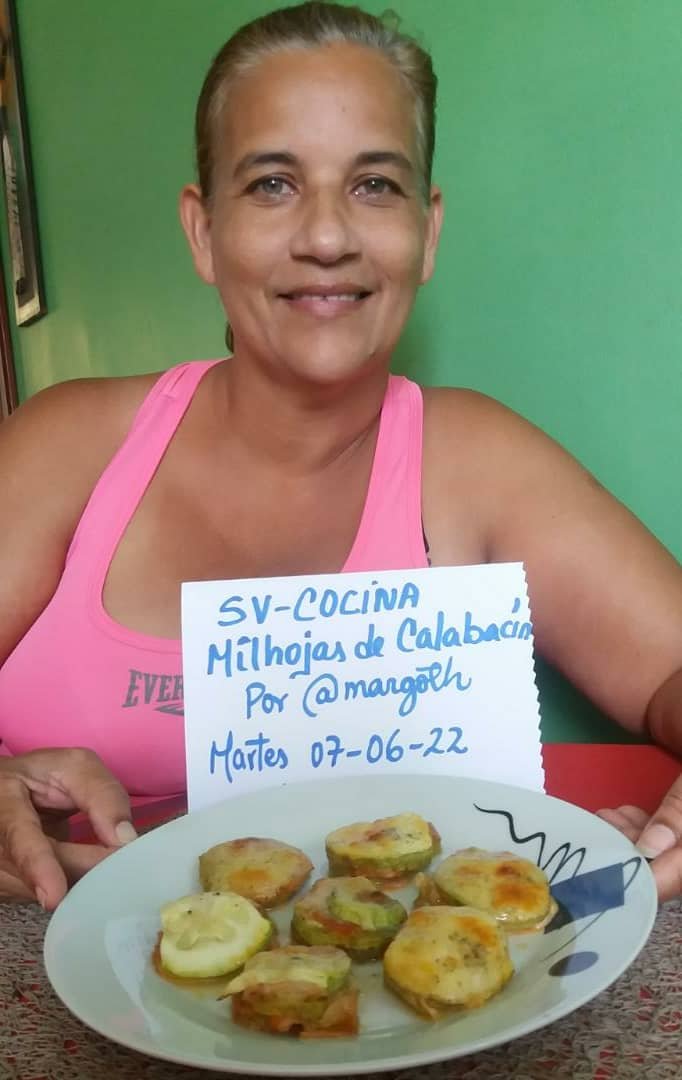 SV-COCINA
Milhojas de Calabacín
Por @margoth
Martes 07-06-22
EVER